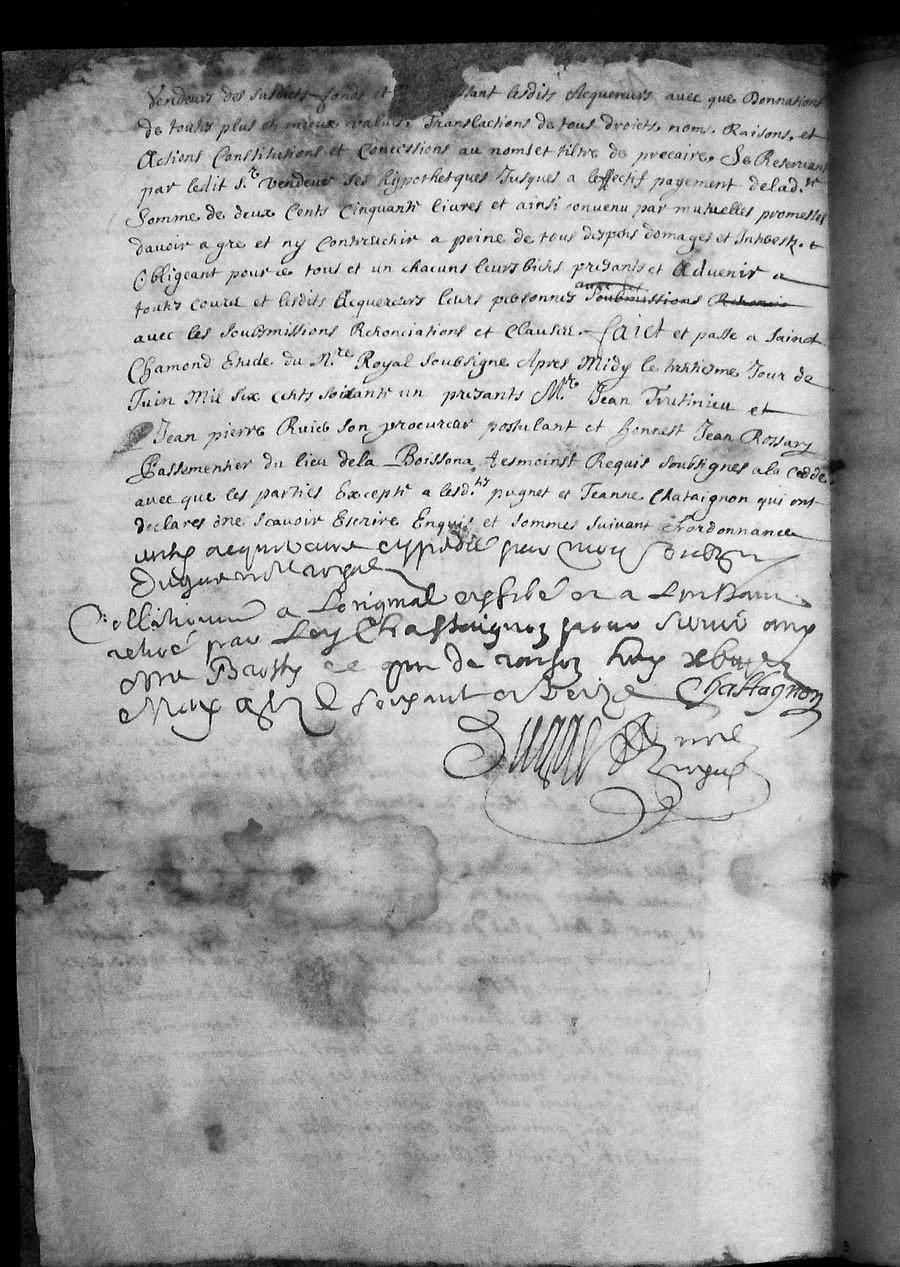 Vendeurs des susdicts fonds et lesdits Acquereurs avec que Donnations
de touttes plus et mieux values. Translactions de tous droicts noms. Raisons. et
Actions Constitutions et Concessions au nom et tiltre de precaire. Se Reservant
par ledit S.r Vendeur ses hypotheques Jusques a leffectif payement delad.te
Somme de deux Cents Cinquante livres et ainsi convenu par mutuelles promesses
davoir a gre et ny Contrevenir a peine de tous despens domages et Interests. et
Obligeant pour ce tous et un chacuns leurs biens presants et Advenir a
touttes cours et lesdits Acquereurs leurs personnes Soubmissions
avec les Soubmissions Renonciations et Clauses. faict et passe a Sainct
Chamond Etude du N.re Royal Soubsigne Apres Midy le tretiesme Jour de
Juin Mil Six cents soixante un presants M.re Jean Trutinieu et
Jean pierre Ruieb son procureur postulant et honnest Jean Rossary
Passementier du lieu dela Boissona tesmoinst Requis soubsignes a la cedde
avec que les parties Excepte a lesd.ts pugnet et Jeanne Chataignon qui ont
declares one Scavoir Escrire Enquis et sommes suivant lordonnance
expedie pour moy Soubsigne
Dugas no.re royal
Collationne a Loriginal exhibé et a Linstant
retiré par Ley Chastaignon pour servir aux
ce que de raison
soixante et treize Chastagnon
Dugas no.re
royal